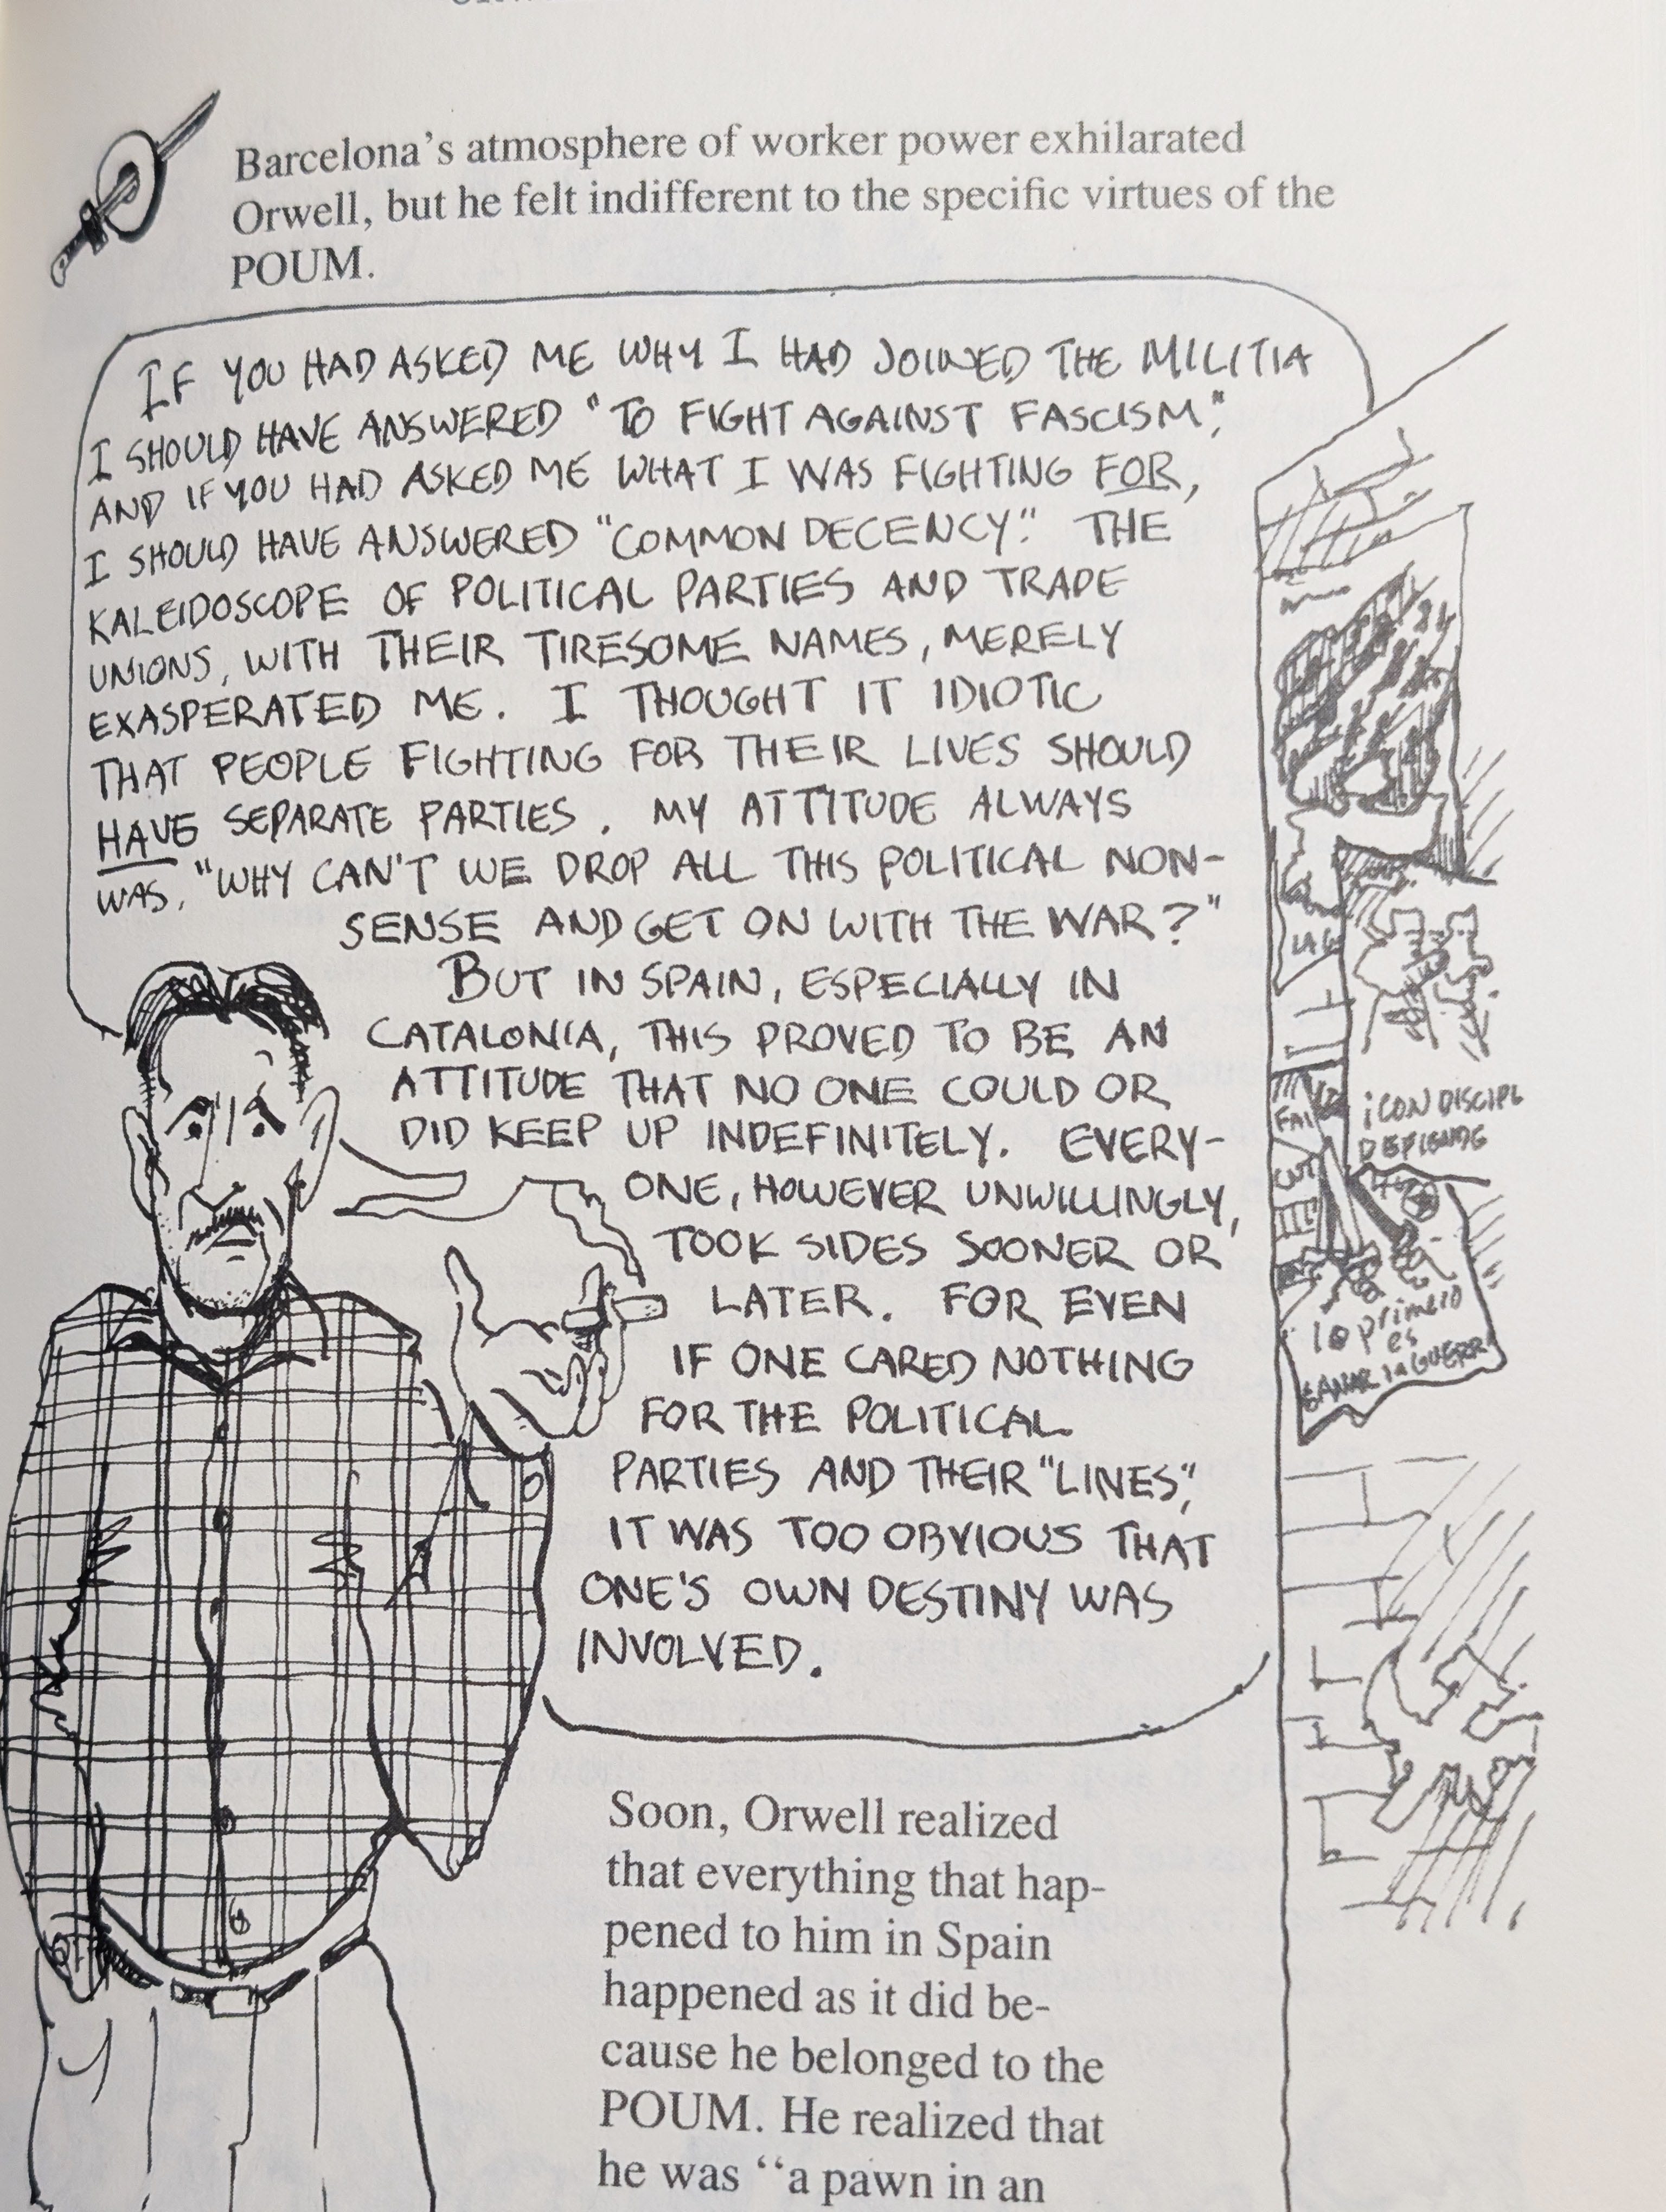 Barcelona's atmosphere of worker power exhilarated
Orwell, but he felt indifferent to the specific virtues of the
POUM.
IF YOU HAD ASKED ME WHY I HAD JOINED THE MILITIA
I SHOULD HAVE ANSWERED "TO FIGHT AGAINST FASCISM,"
AND IF YOU HAD ASKED ME WHAT I WAS FIGHTING FOR,
I SHOULD HAVE ANSWERED "COMMON DECENCY." THE
KALEIDOSCOPE OF POLITICAL PARTIES AND TRADE
UNIONS, WITH THEIR TIRESOME NAMES, MERELY
EXASPERATED ME. I THOUGHT IT IDIOTIC
THAT PEOPLE FIGHTING FOR THEIR LIVES SHOULD
HAVE SEPARATE PARTIES. MY ATTITUDE ALWAYS
WAS, "WHY CAN'T WE DROP ALL THIS POLITICAL NON-
SENSE AND GET ON WITH THE WAR?"
BUT IN SPAIN, ESPECIALLY IN
CATALONIA, THIS PROVED TO BE AN
ATTITUDE THAT NO ONE COULD OR
DID KEEP UP INDEFINITELY. EVERY-
ONE, HOWEVER UNWILLINGLY,
TOOK SIDES SOONER OR
LATER. FOR EVEN
IF ONE CARED NOTHING
FOR THE POLITICAL
PARTIES AND THEIR "LINES,"
IT WAS TOO OBVIOUS THAT
ONE'S OWN DESTINY WAS
INVOLVED.
FAI
¡CON DISCIPL
lo primero
es
GANAR la GUERR
Soon, Orwell realized
that everything that hap-
pened to him in Spain
happened as it did be-
cause he belonged to the
POUM. He realized that
he was "a pawn in an